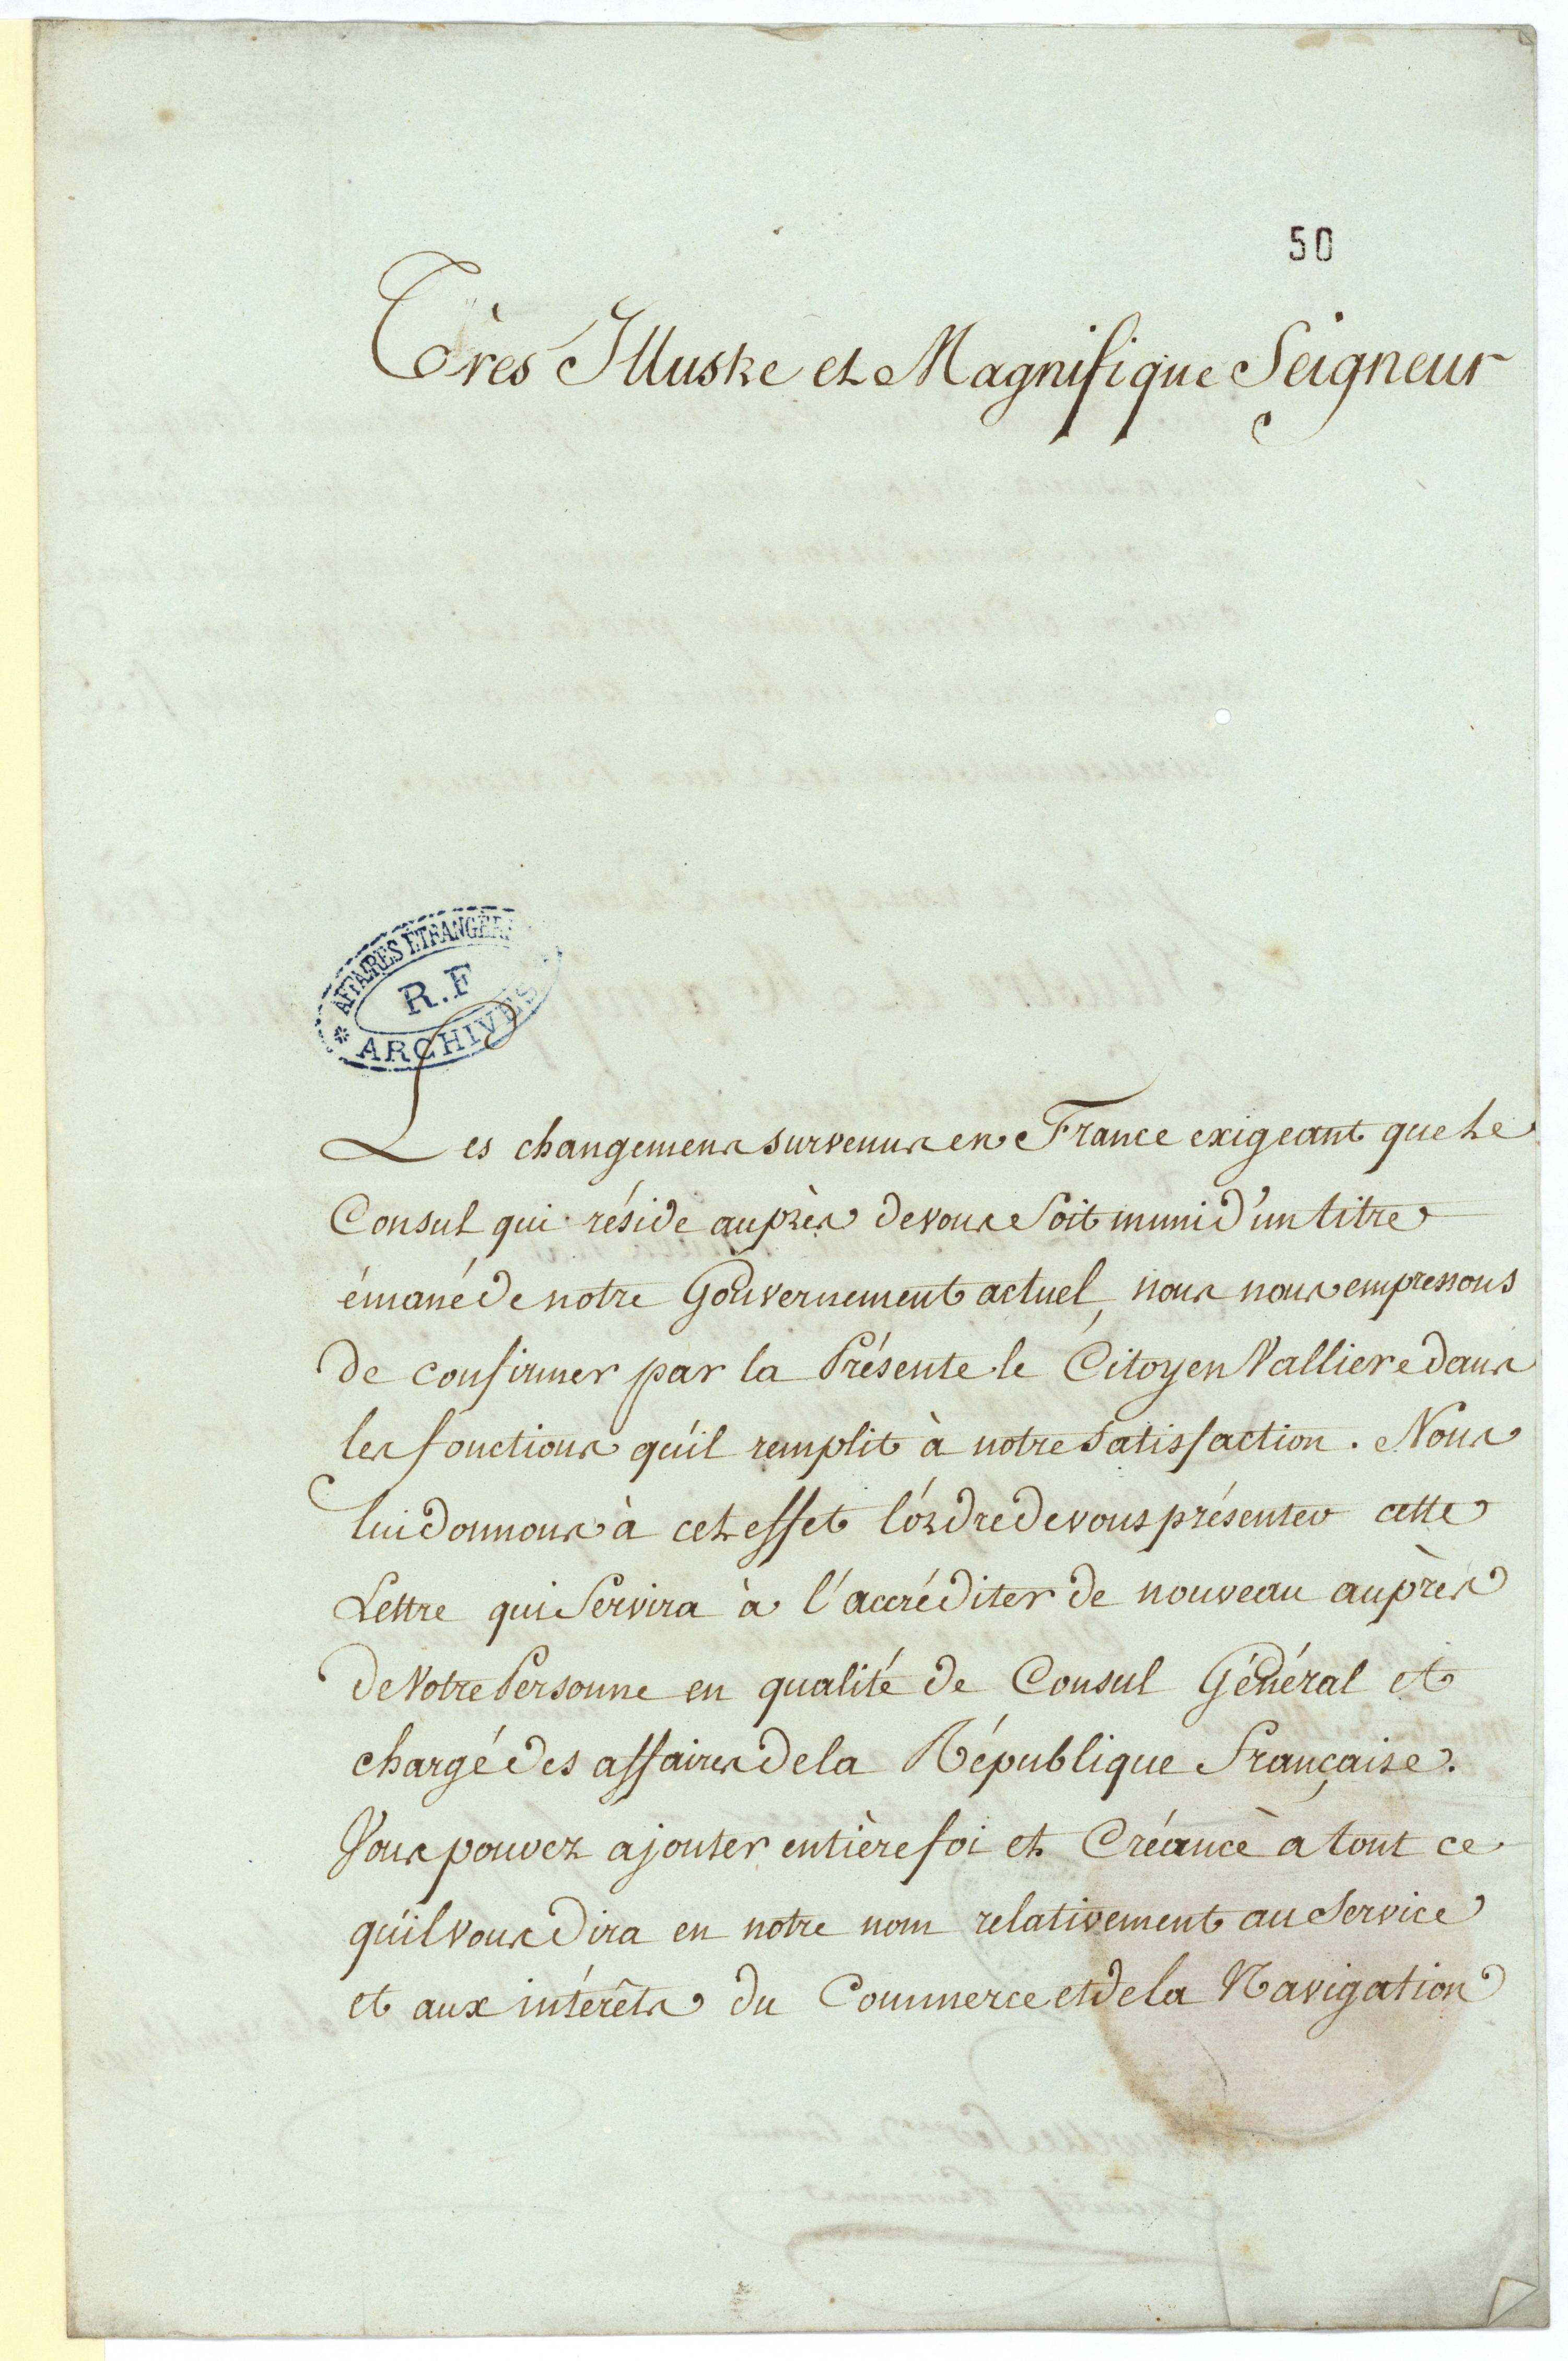 50
Très Illustre et Magnifique Seigneur
* AFFAIRES ÉTRANGÈRES
R.F
ARCHIVES
Les changemens survenus en France exigeant que le
Consul qui réside auprès de vous soit muni d'un titre
émané de notre Gouvernement actuel, nous nous empressons
de confirmer par la Présente le Citoyen Valliere dans
les fonctions qu'il remplit à notre satisfaction. Nous
lui donnons à cet effet l'ordre de vous présenter cette
Lettre qui Servira à l'accréditer de nouveau auprès
de Votre Personne en qualité de Consul Général et
chargé des affaires de la République Française.
Vous pouvez ajouter entière foi et Créance à tout ce
qu'il vous dira en notre nom relativement au Service
et aux intérêts du Commerce et de la Navigation